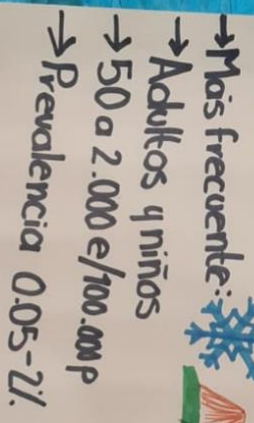 →Más frecuente:
→Adultos y niños
→50 a 2.000 e/100.000 p
→Prevalencia 0.05-2%.